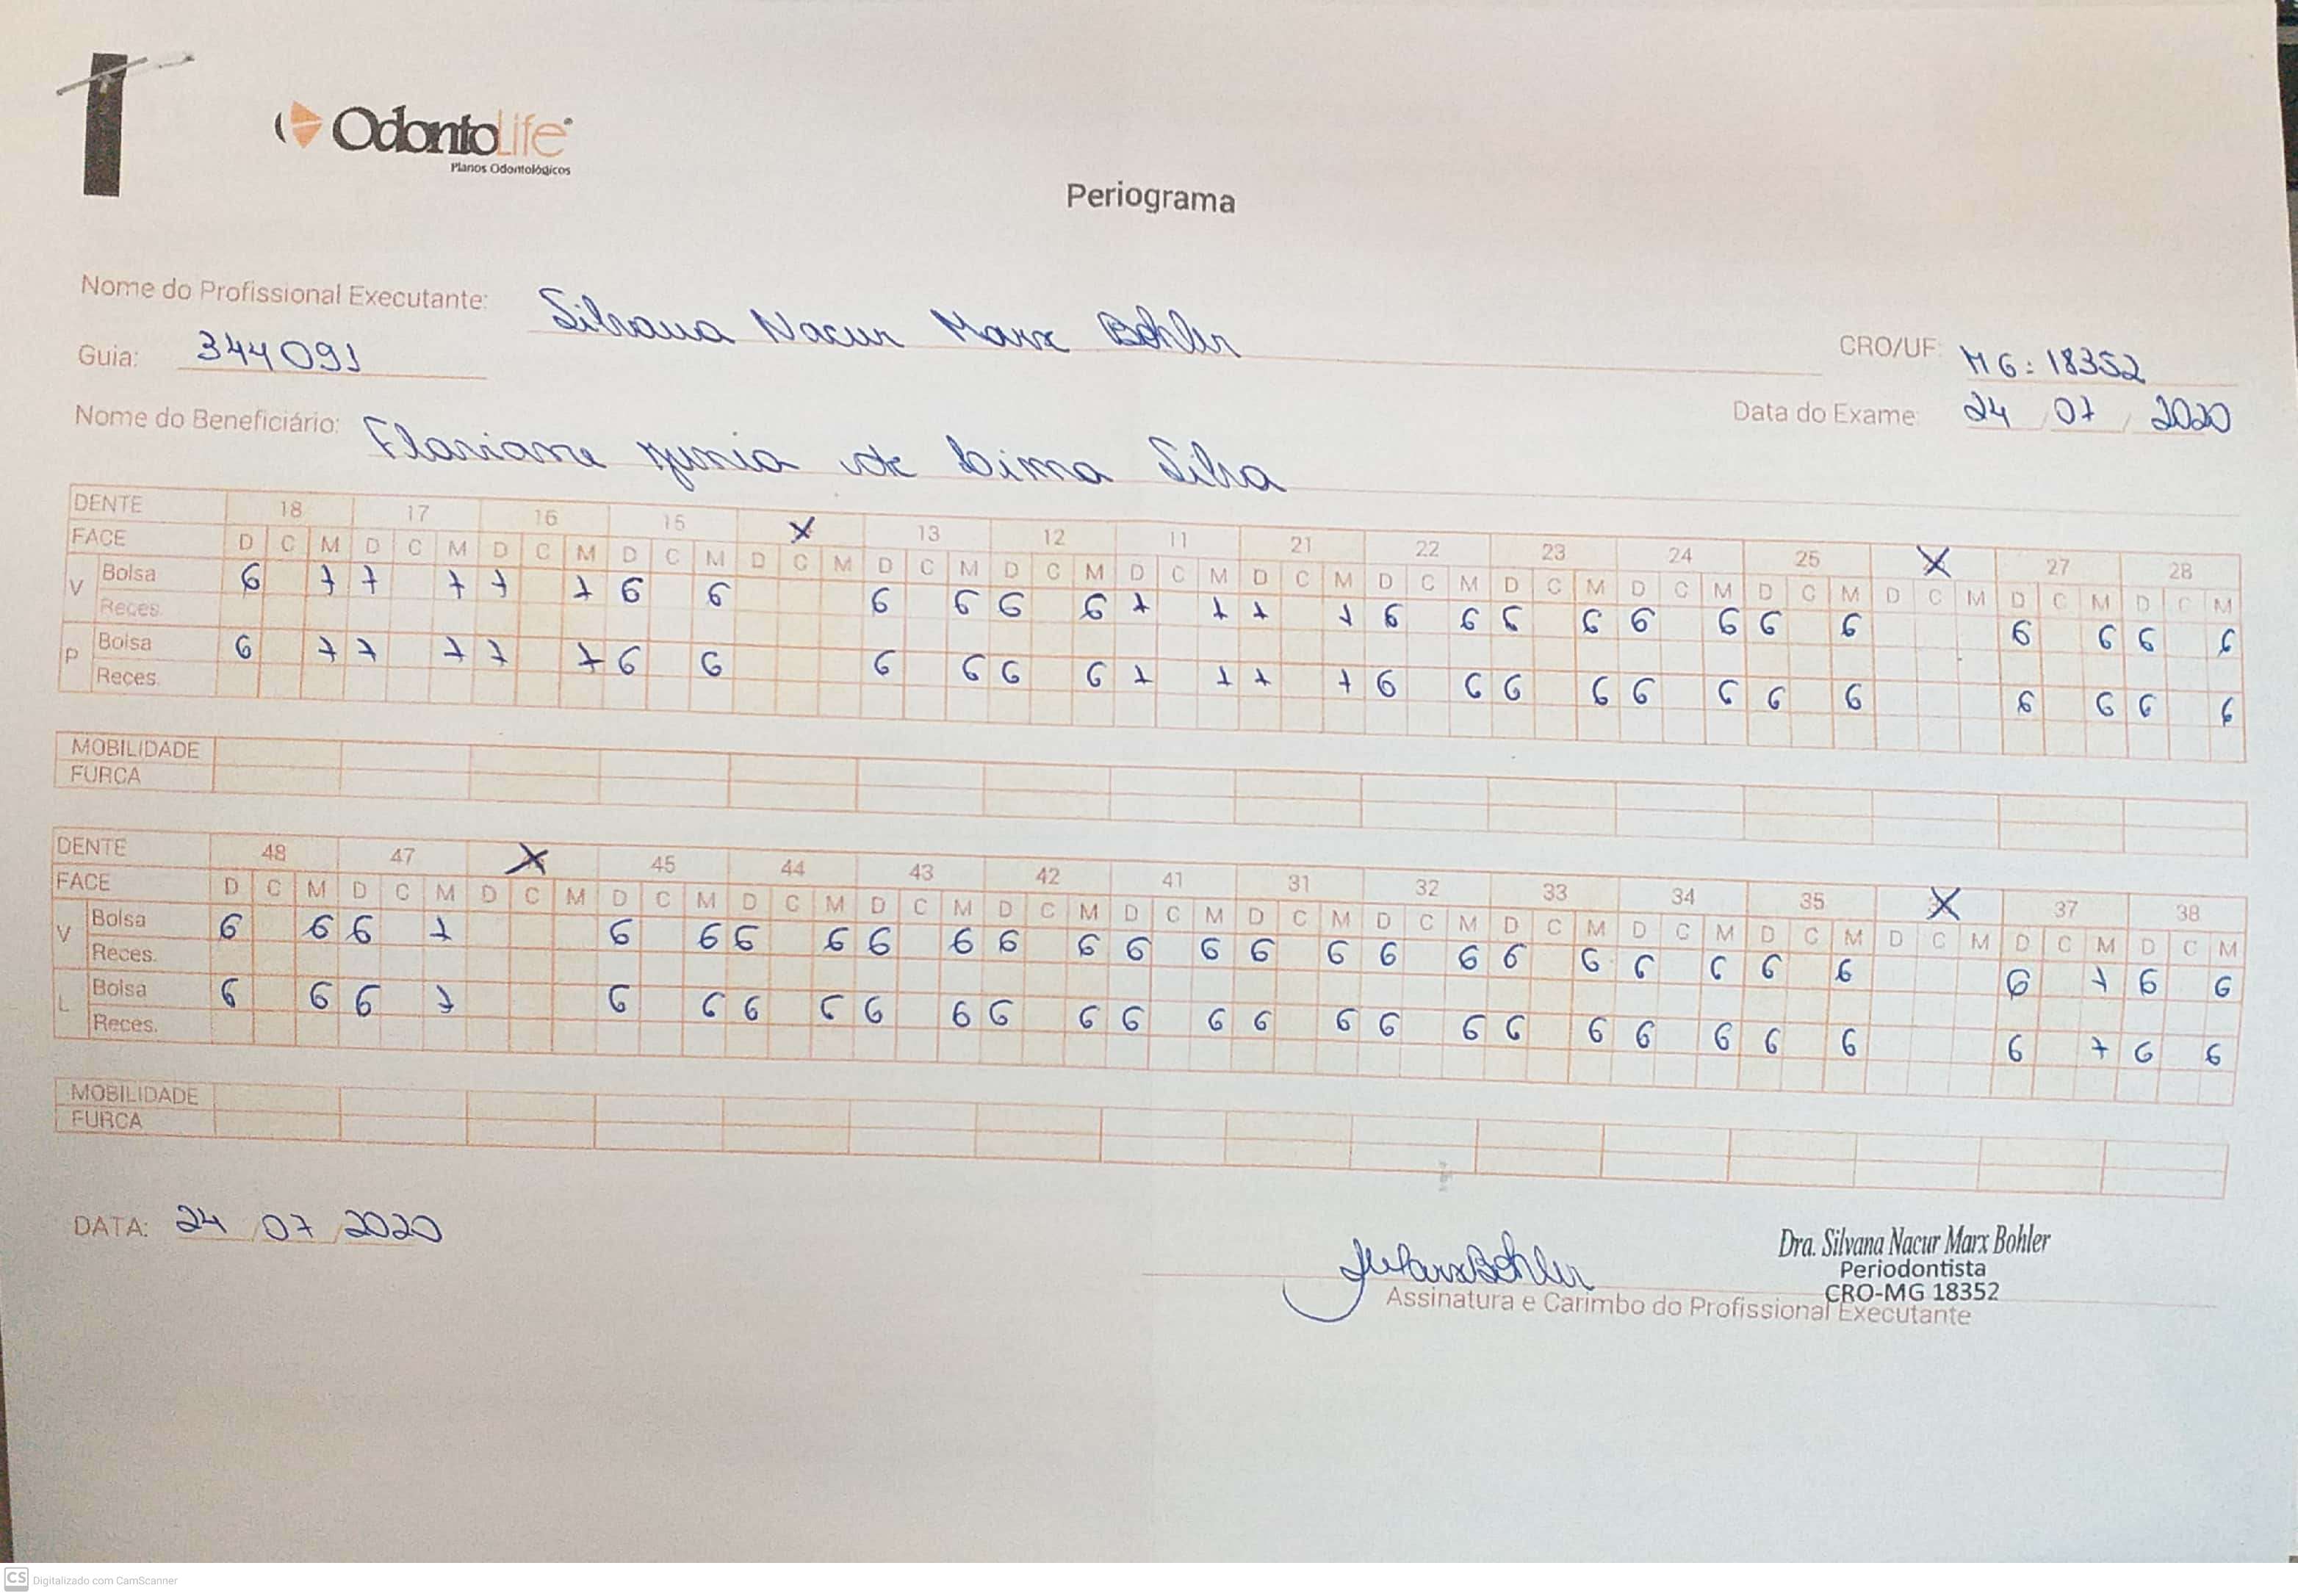 OdontoLife
Planos Odontológicos
Periograma
Nome do Profissional Executante: Silvana Nacur Marx Bohler
CRO/UF: MG: 18352
Guia: 344091
Data do Exame: 24 / 07 / 2020
Nome do Beneficiário: Flaviane Junia de Lima Silva
DENTE 18 17 16 15 X 13 12 11 21 22 23 24 25 X 27 28
FACE D C M D C M D C M D C M D C M D C M D C M D C M D C M D C M D C M D C M D C M D C M D C M D C M
V Bolsa 6 7 7 7 7 7 6 6 6 6 6 6 7 7 7 7 6 6 6 6 6 6 6 6 6 6 6 6
Reces.
P Bolsa 6 7 7 7 7 7 6 6 6 6 6 6 7 7 7 7 6 6 6 6 6 6 6 6 6 6 6 6
Reces.
MOBILIDADE
FURCA
DENTE 48 47 X 45 44 43 42 41 31 32 33 34 35 X 37 38
FACE D C M D C M D C M D C M D C M D C M D C M D C M D C M D C M D C M D C M D C M D C M D C M D C M
V Bolsa 6 6 6 7 6 6 6 6 6 6 6 6 6 6 6 6 6 6 6 6 6 6 6 6 6 7 6 6
Reces.
L Bolsa 6 6 6 7 6 6 6 6 6 6 6 6 6 6 6 6 6 6 6 6 6 6 6 6 6 7 6 6
Reces.
MOBILIDADE
FURCA
DATA: 24 / 07 / 2020
Dra. Silvana Nacur Marx Bohler
Periodontista
CRO-MG 18352
Assinatura e Carimbo do Profissional Executante
CS Digitalizado com CamScanner